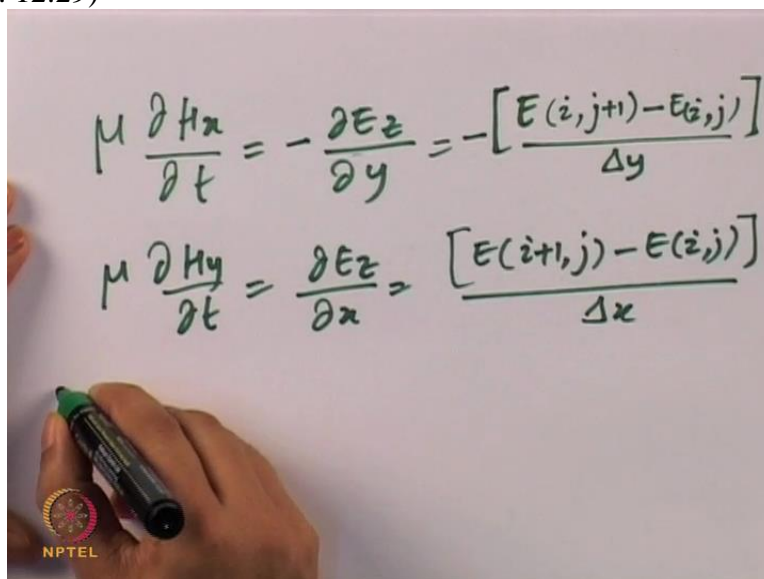 12:29)
μ ∂Hx/∂t = - ∂Ez/∂y = -[E(i, j+1) - E(i, j)]/Δy
μ ∂Hy/∂t = ∂Ez/∂x = [E(i+1, j) - E(i, j)]/Δx
NPTEL